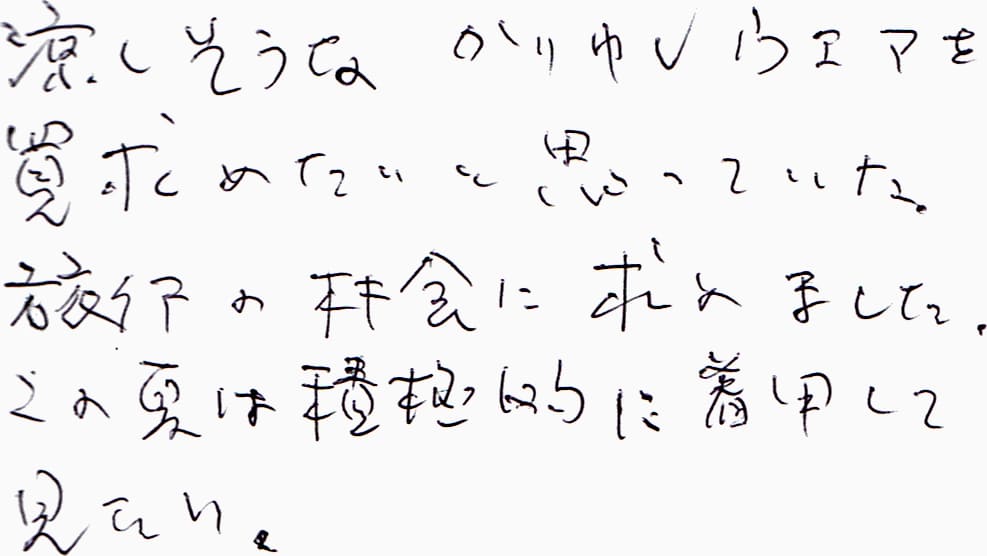 涼しそうな かりゆしウエアを
買求めたいと思っていた。
旅行の機会に求めました.
この夏は積極的に着用して
見たい。